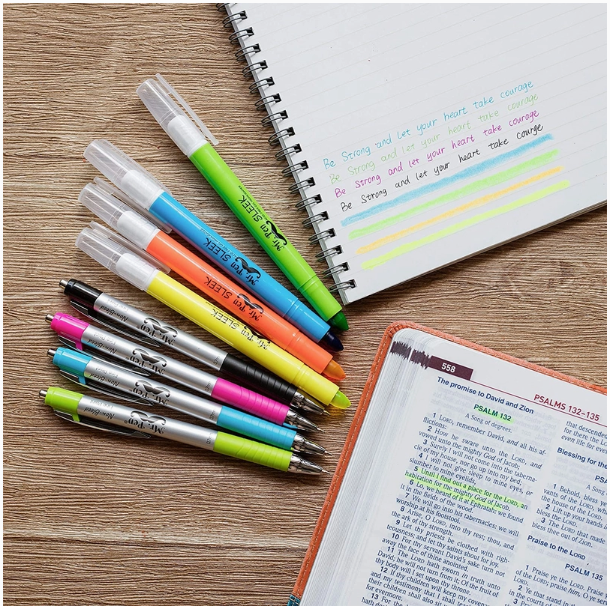 Be Strong and let your heart take courage
Be Strong and let your heart take courage
Be Strong and let your heart take courage
Be Strong and let your heart take courge
Mr. Pen SLEEK
Mr. Pen SLEEK
Mr. Pen SLEEK
Mr. Pen SLEEK
Mr. Pen
Mr. Pen
Mr. Pen
Mr. Pen
558
PSALMS 132–135
The promise to David and Zion
PSALM 132
A Song of degrees.
1 LORD, remember David, and all his af-
flictions:
2 How he sware unto the LORD, and
vowed unto the mighty God of Jacob;
3 Surely I will not come into the taberna-
cle of my house, nor go up into my bed;
4 I will not give sleep to mine eyes, or
slumber to mine eyelids,
5 Until I find out a place for the LORD, an
habitation for the mighty God of Jacob.
6 Lo, we heard of it at Ephratah: we found
it in the fields of the wood.
7 We will go into his tabernacles: we will
worship at his footstool.
8 Arise, O LORD, into thy rest; thou, and
the ark of thy strength.
9 Let thy priests be clothed with right-
eousness; and let thy saints shout for joy.
10 For thy servant David's sake turn not
away the face of thine anointed.
11 The LORD hath sworn in truth unto
David; he will not turn from it; Of the fruit of
thy body will I set upon thy throne.
12 If thy children will keep my covenant
and my testimony that I shall
their children shall also sit
for evermore.
13 For the
Blessing for the
PSA
A Song
1 Behold, bless
Praise to the LORD
PSALM 135
1 Praise ye the LORD.
2 Ye that stand